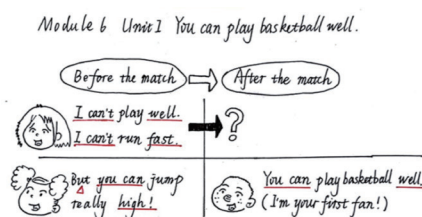 Module 6 Unit 1 You can play basketball well.
Before the match
After the match
I can't play well.
I can't run fast.
?
But you can jump
really high!
You can play basketball well.
(I'm your first fan!)